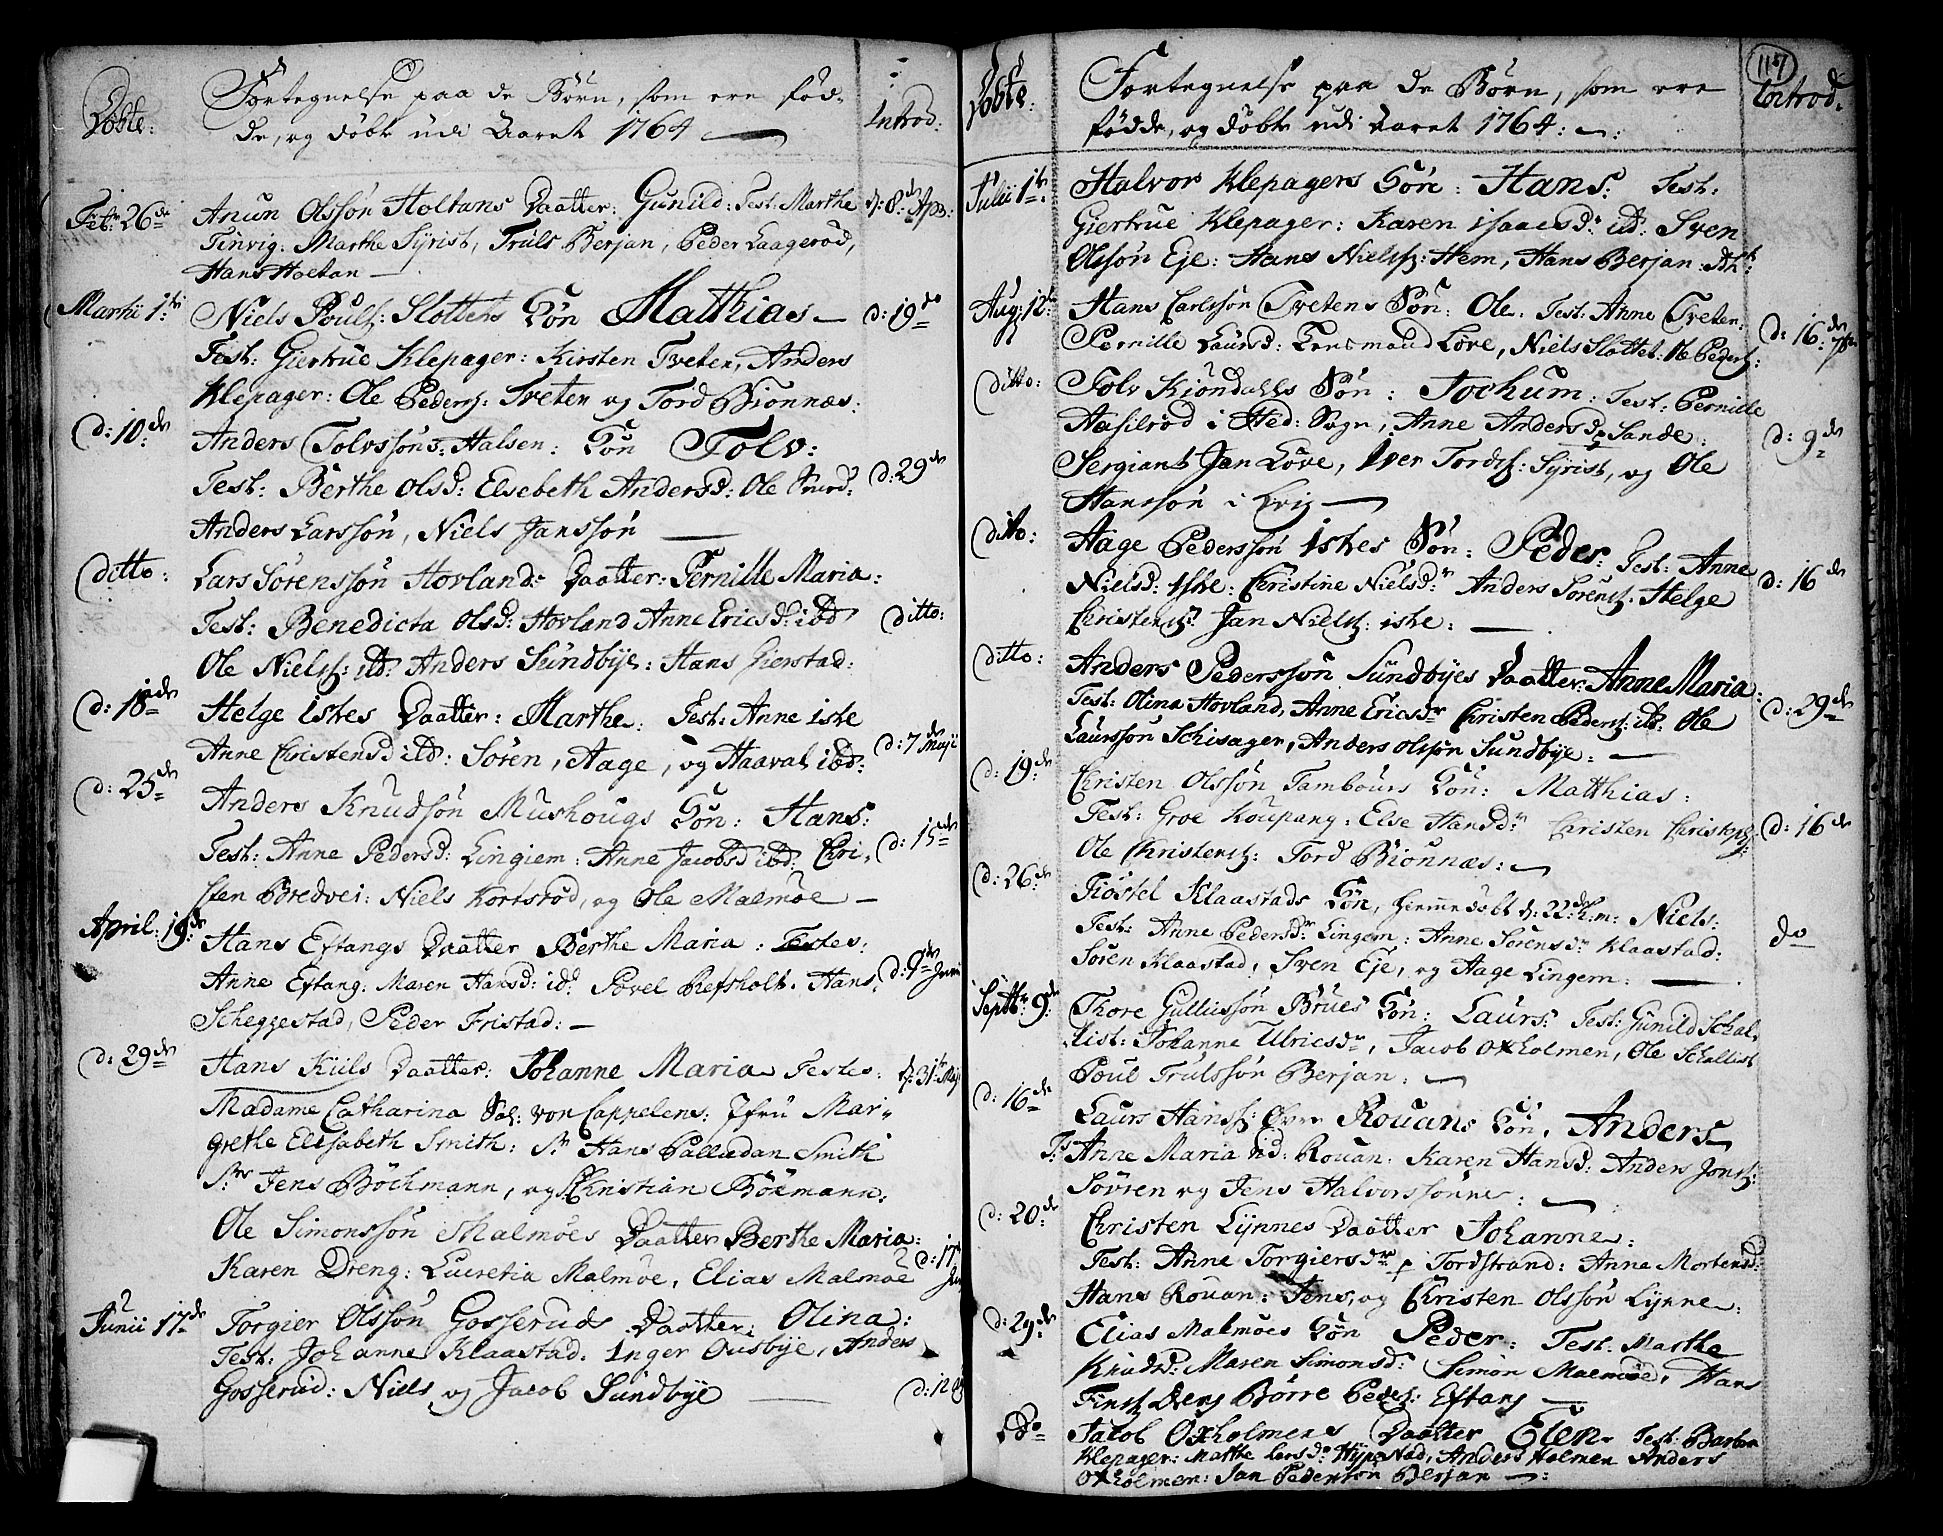 Døbte:
Fortegnelse paa de Børn, som ere fød-
de, og døbte udi Aaret 1764
Introd:
Febr: 26de
Anun Olssøn Holtans Daatter: Gunild: Test: Marthe
d: 8de Apr:
Tinvig: Marthe Syrist, Truls Berjan, Peder Laagerød,
Hans Holtan —
Martii 1te
Niels Pouls: Slottets Søn Matthias —
d: 19de
Test: Giertrue Klepager: Kirsten Tveten, Anders
Klepager: Ole Peders: Tveten og Tord Bionnæs:
d: 10de
Anders Tolvssøns: Halsen: Søn Tolv:
Test: Berthe Olsd: Elsebeth Andersd: Ole
d: 29de
Anders Larssøn, Niels Janssøn —
ditto:
Lars Sørenssøn Hovland: Daatter: Pernille Maria:
Test: Benedicta Olsd: Hovland Anne Ericsd: ibd
ditto:
Ole Niels: ibd: Anders Sundbye: Hans Gierstad:
d: 18de
Helge Istes Daatter: Marthe: Test: Anne iste
Anne Christensd ibd: Søren, Aage, og Haaval ibd:
d: 7de Maji
d: 25de
Anders Knudsøn Muskougs Søn: Hans:
Test: Anne Pedersd: Lingiem: Anne Jacobsd ibd: Chri-
d: 15de
sten Bredvei: Niels Kortsrød, og Ole Malmøe —
April: 19de
Hans Eftangs Daatter Berthe Maria: Testes:
Anne Eftang: Maren Hansd: id: Povel Refsholt. Hans
d: 9de Junii
Scheggestad, Peder Fristad: —
d: 29de
Hans Kiils Daatter: Johanne Maria Testes:
d: 31te Maji
Madame Catharina Sal: von Cappelens: Jfru Mar-
grethe Elisabeth Smith: Sr Hans Palludan Smith
Sr Jens Böckmann, og Christian Böemann:
Ole Simonssøn Malmøes Daatter Berthe Maria:
Karen Dreng: Lucretia Malmøe, Elias Malmøe
d: 17
Junii 17de
Torgier Olssøn Gosseruds Daatter: Olina:
Test: Johanne Klaastad: Inger Ousbye, Anders
Gosserud: Niels og Jacob Sundbye —
d: 12
Døbte:
Fortegnelse paa de Børn, som ere
fødde, og døbte udi Aaret 1764:
Introd:
117
Julii 1te
Halvor Klepagers Søn: Hans: Test:
Giertrue Klepager: Karen isaacsdr id: Sven
Olssøn Eje: Hans Niels: Hem, Hans Berjan
Aug: 12te
Hans Carlssøn Tvetens Søn: Ole. Test: Anne Tveten:
Pernille Laursd: Lensmand Love, Niels Slottet: Ole Peders:
d: 16de 7br
ditto:
Tolv Kiøndahls Søn: Jochum: Test: Pernille
Aasilrød i Hed: Sogn, Anne Andersd Sande:
d: 9de
Sergiant Jan Love, Iver Tords: Syrist, og Ole
Hanssøn i Lvig —
ditto:
Aage Pederssøn Istes Søn: Peder: Test: Anne
Nielsd: iste: Christine Nielsdr Anders Sørens: Helge
d: 16de
Christens: Jan Niels: iste: —
ditto:
Anders Pederssøn Sundbyes Daatter: Anne Maria:
Test: Olina Hovland, Anne Ericsdr Christen Peders: ibd: Ole
d: 29de
Laurssøn Schisager, Anders Olssøn Sundbye: —
d: 19de
Christen Olssøn Tambours Søn: Matthias:
Test: Groe Koupang: Else Hansdr Christen Christops:
d: 16de
Ole Christens: Tord Bionnæs: —
d: 26de
Tiøstel Klaastads Søn, hiemmedøbt d: 22de h: m: Niels:
Test: Anne Pedersdr Lingem: Anne Sørensdr Klaastad:
do
Søren Klaastad, Sven Eje, og Aage Lingem: —
Septbr 9de
Thore Gullussøn Brues Søn: Laurs: Test: Gunild Schal-
list: Johanne Ulricsdr, Jacob Oxholmen, Ole Schallist
Poul Trulssøn Berjan: —
d: 16de
Laurs Hans: Øvre Rouans Søn, Anders
Ts: Anne Maria ibd: Rouan: Karen Hansd: Anders Jons:
Søvren og Jens Halvorssønne: —
d: 20de
Christen Lynnes Daatter Johanne:
Test: Anne Torgiersdr p Tordstrand: Anne Mortensd:
Hans Rouan: Jens, og Christen Olssøn Lynne:
d: 29de
Elias Malmøes Søn Peder: Test: Marthe
Knudsd: Maren Simonsd: Simon Malmøe, Hans
Børre Peders: Eftang —
do
Jacob Oxholmens Daatter Elen. Test: Barbra
Klepager: Marthe Larsdr Hyppestad, Anders Holmen Anders
Oxholmen: Jan Pederssøn Berjan —: